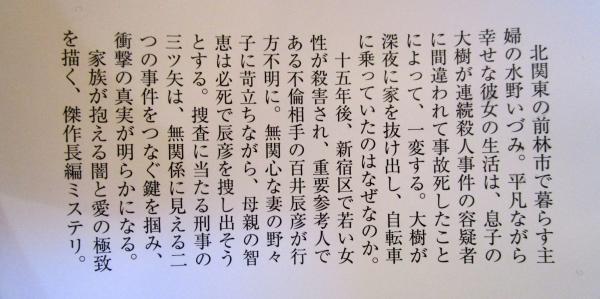 北関東の前林市で暮らす主
婦の水野いづみ。平凡ながら
幸せな彼女の生活は、息子の
大樹が連続殺人事件の容疑者
に間違われて事故死したこと
によって、一変する。大樹が
深夜に家を抜け出し、自転車
に乗っていたのはなぜなのか。
十五年後、新宿区で若い女
性が殺害され、重要参考人で
ある不倫相手の百井辰彦が行
方不明に。無関心な妻の野々
子に苛立ちながら、母親の智
恵は必死で辰彦を捜し出そう
とする。捜査に当たる刑事の
三ツ矢は、無関係に見える二
つの事件をつなぐ鍵を掴み、
衝撃の真実が明らかになる。
家族が抱える闇と愛の極致
を描く、傑作長編ミステリ。